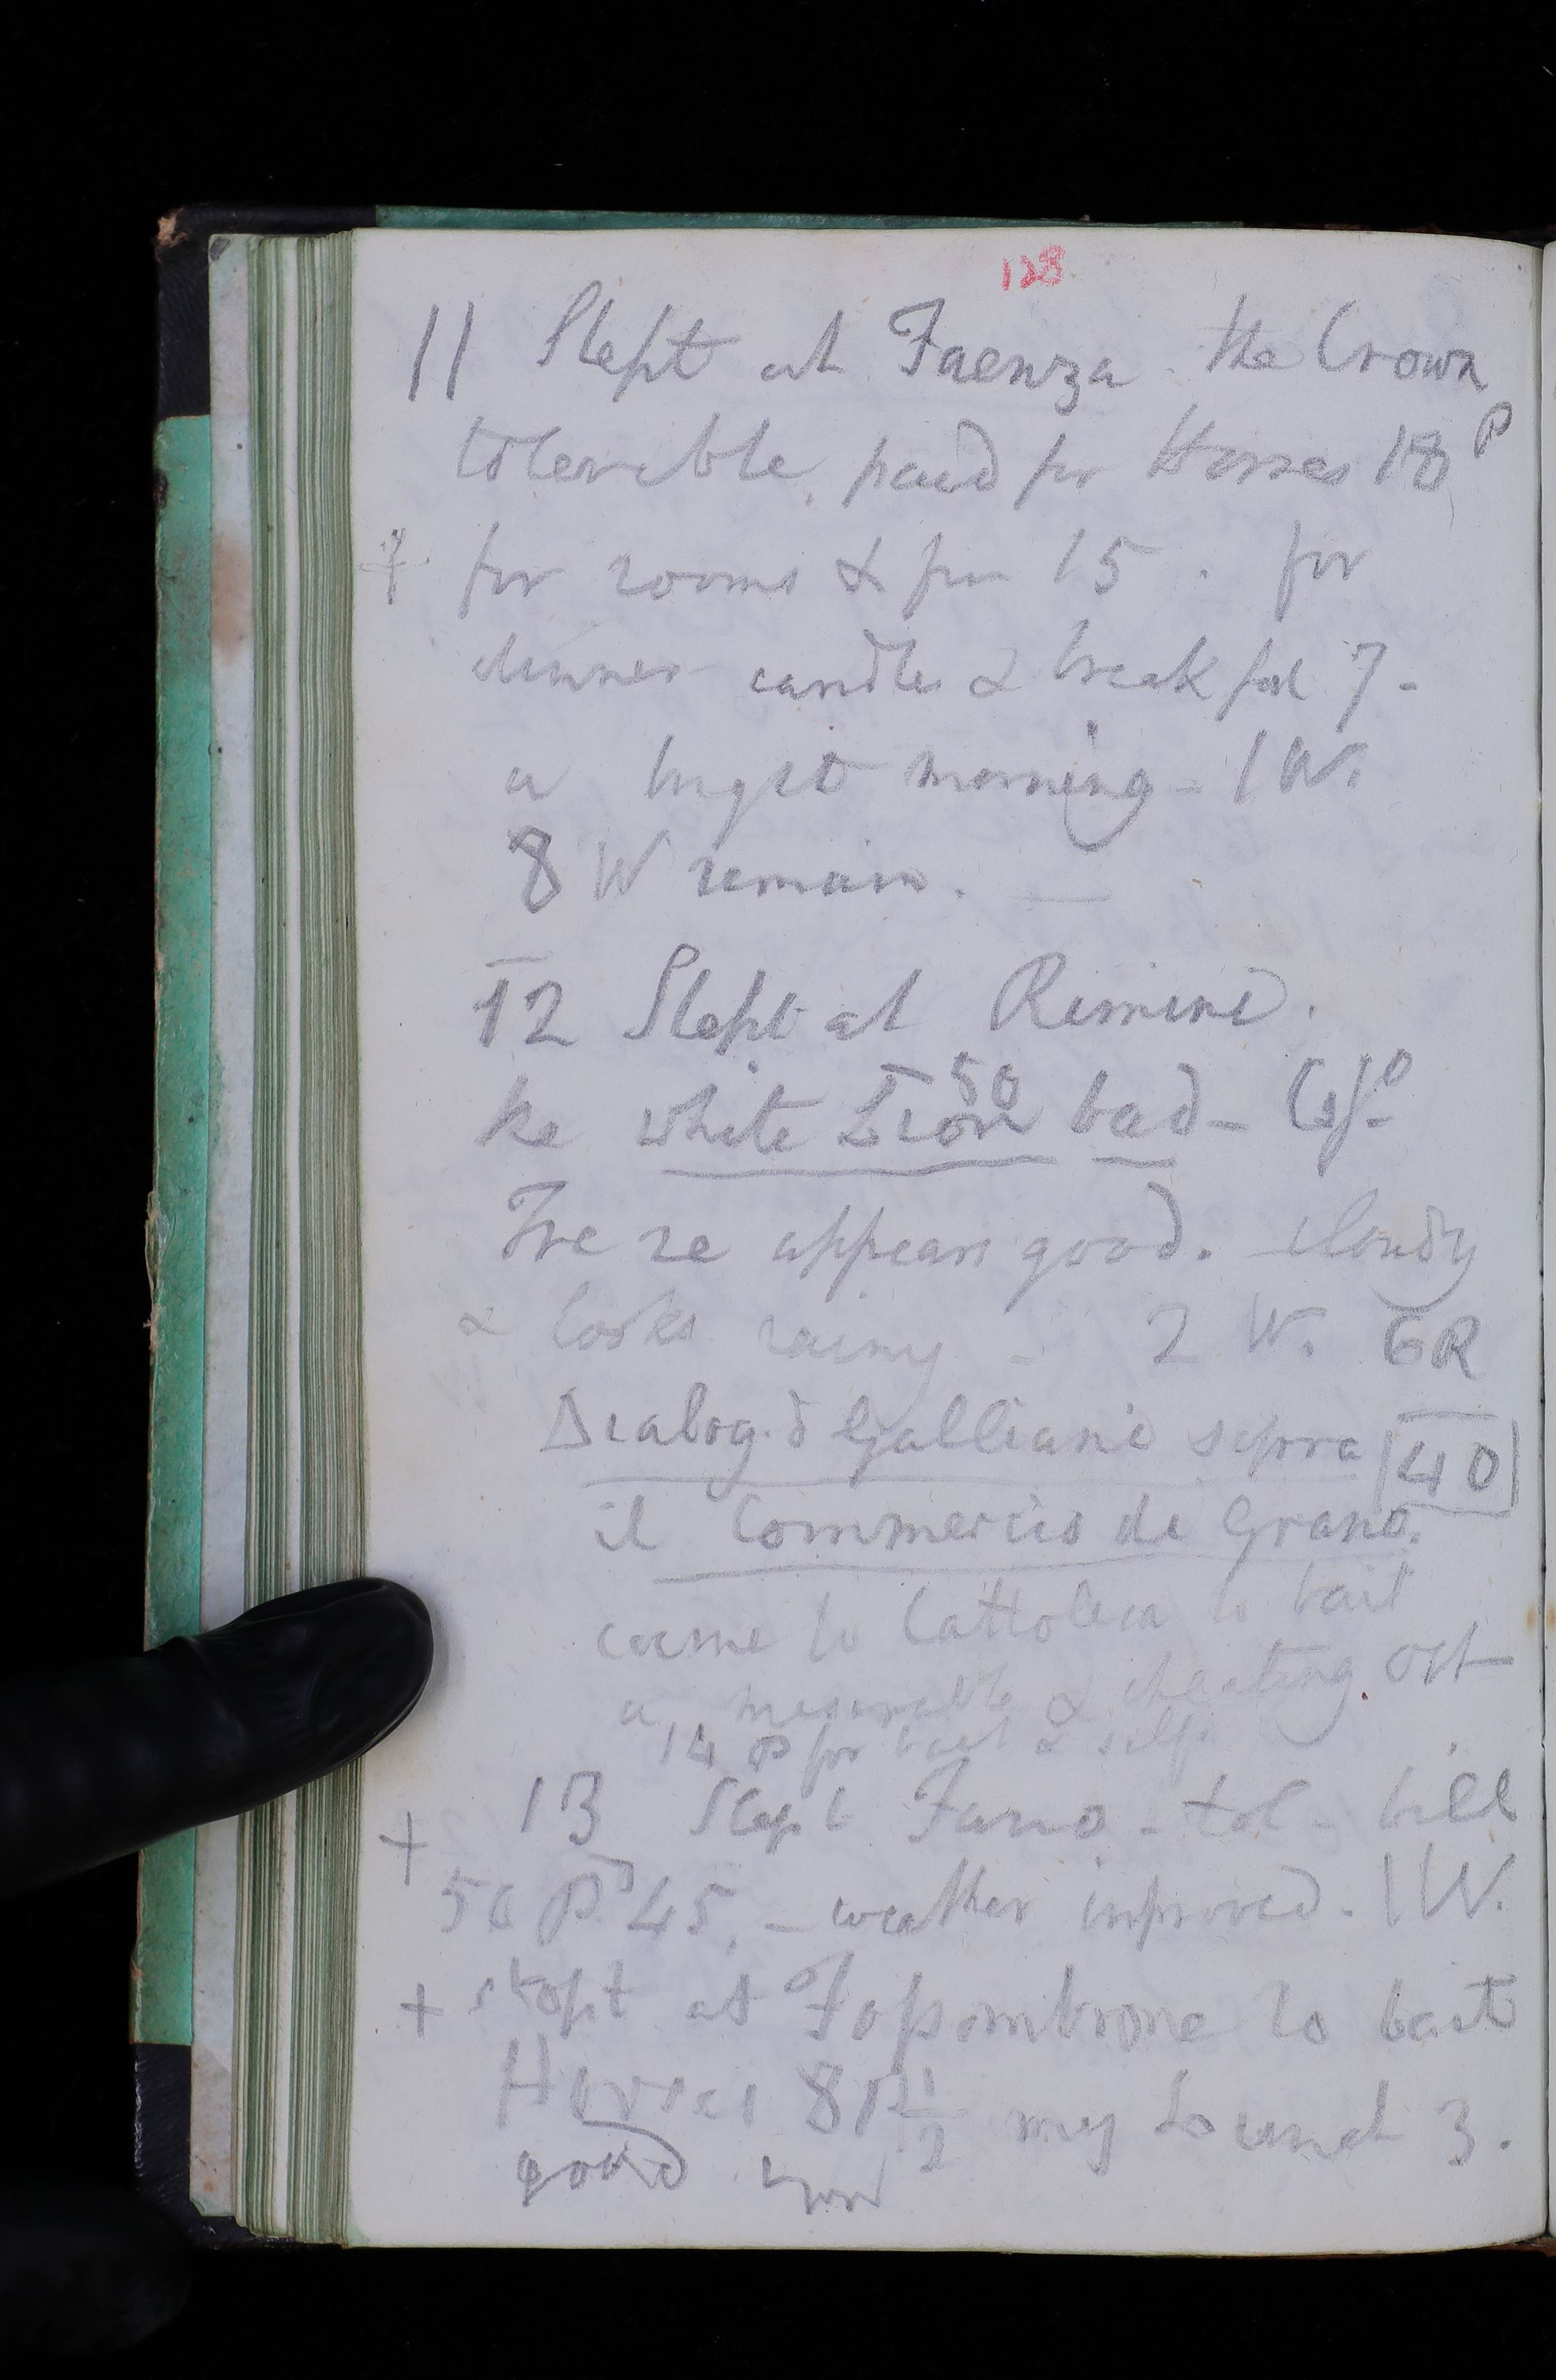 128
11 Slept at Faenza. the Crown
tolerable. paid for Horses 18 P
+ for rooms & fire 15. for
dinner candles & breakfast 7 -
a bright morning - 1 W.
8 W remain. —
12 Slept at Rimini.
50
the white Lion bad -
Tre Re appears good. cloudy
& looks rainy - 2 W. 6R
Dialog. d Galliani sopra 40
il Commercio de Grano.
came to Cattolica to bait
a miserable & cheating ost
14 P for bait & self.
+ 13 Slept Fano - tol - bill
50 P 45. - weather improved. 1 W.
+ stopt at Fossombrone to bait
Horses 8 P 1/2 my Lunch 3.
good